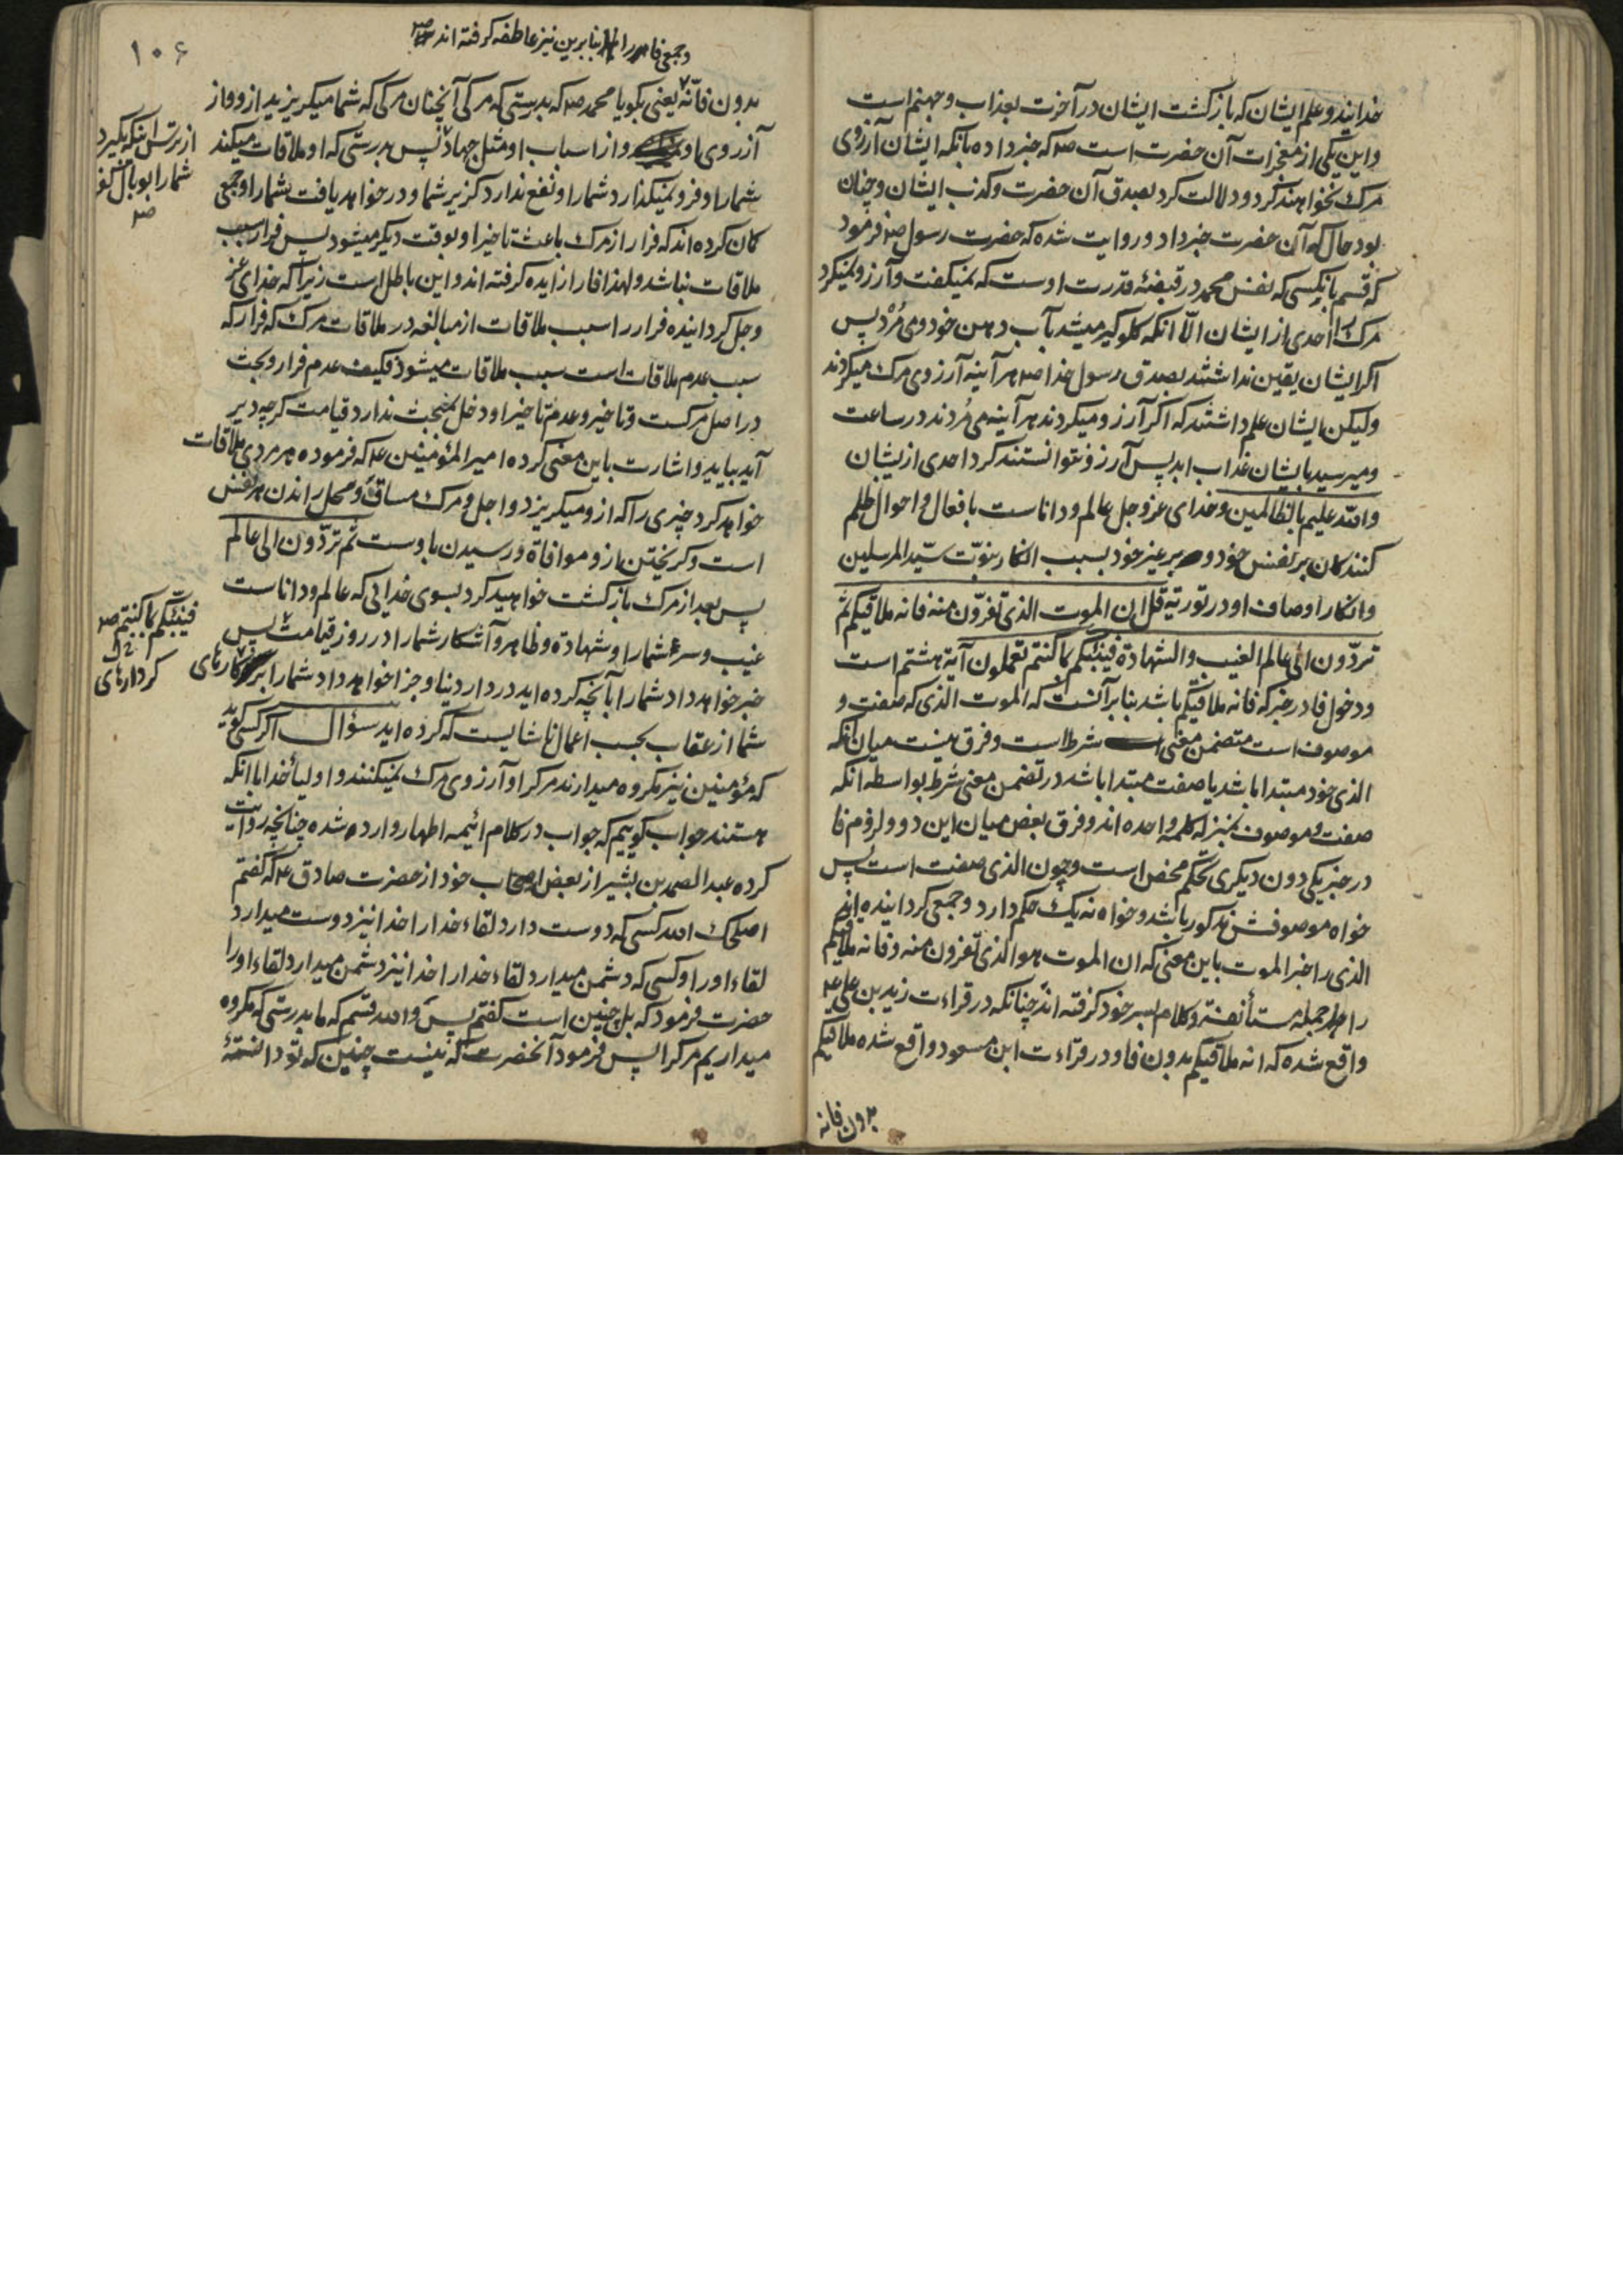 خدایند و علم ایشان که بازگشت ایشان در آخرت بعذاب و جهنم است
و این یکی از معجزات آن حضرت است صه که خبر داده بانکه ایشان آرزوی
مرک نخواهند کرد و دلالت کرد بصدق آن حضرت و کذب ایشان و چنان
بود حال که آن حضرت خبر داد و روایت شده که حضرت رسول صه فرمود
که قسم بانکسی که نفس محمد در قبضهٔ قدرت اوست که نمیکفت و آرزو نمیکرد
مرک را احدی از ایشان الّا انکه کلوکیر میشد بآب دهن خود و می مُرْد پس
اکر ایشان یقین نداشتند بصدق رسول خدا صه هر آینه آرزوی مرک میکردند
ولیکن ایشان علم داشتند که اکر آرزو میکردند هر آینه می مُردند در ساعت
و میرسید بایشان عذاب ابد پس آرزو نتوانستند کرد احدی ازیشان
والله علیم بالظالمین و خدای عزوجل عالم و داناست بافعال و احوال ظلم
کنندکان بر نفس خود و بر غیر خود بسبب انکار نبوّت سیّد المرسلین
و انکار اوصاف او در توریة قل ان الموت الذی تفرّون منه فانه ملاقیکم ثم
تردّون الی عالم الغیب والشهادة فینبّئکم بما کنتم تعملون آیة هشتم است
و دخول فا در خبر که فانه ملاقیکم باشد بنابر آنست که الموت الذی که صفت و
موصوف است متضمن معنی شرط است و فرق نیست میان انکه
الذی خود مبتدا باشد یا صفت مبتدا باشد در تضمن معنی شرط بواسطه انکه
صفت و موصوف بمنزله کلمه واحده اند و فرق بعض میان این دو و لزوم فا
در خبر یکی دون دیکری تحکم محض است و چون الذی صفت است پس
خواه موصوفش مذکور باشد و خواه نه یک حکم دارد و جمعی کردانیده اند
الذی را خبر الموت باین معنی که ان الموت هو الذی تفرون منه و فانه ملاقیکم
را جمله مستأنفه و کلام بسر خود کرفته اند چنانکه در قراءت زید بن علی ع
واقع شده که انه ملاقیکم بدون فا و در قراءت ابن مسعود واقع شده ملاقیکم
بدون فانه
۱۰۶
و جمعی فا را بنابرین نیز عاطفه کرفته اند صه
بدون فانّه یعنی بکو یا محمد صه که بدرستی که مرکی آنچنان مرکی که شما میکریزید ازو و از
آرزوی او و از اسباب او مثل جهاد پس بدرستی که او ملاقات میکند
شما را و فرو نمیکذارد شما را و نفع ندارد کریز شما و در خواهد یافت شما را و جمعی
کمان کرده اند که فرار از مرک باعث تاخیر او بوقت دیکر میشود پس فرار سبب
ملاقات نباشد ولهذا فا را زایده کرفته اند و این باطل است زیرا که خدای عز
وجل کردانیده فرار را سبب ملاقات از مبالغه در ملاقات مرک که فرار که
سبب عدم ملاقات است سبب ملاقات میشود فکیف عدم فرار و بحث
در اصل مرکست و تاخیر و عدم تاخیر او دخل بمبحث ندارد قیامت کرچه دیر
آید بیاید و اشارت باین معنی کرده امیر المؤمنین ع که فرموده هر مردی ملاقات
خواهد کرد چیزی را که ازو میکریزد و اجل و مرک مساق و محل راندن هر نفس
است و کریختن ازو موافاة و رسیدن باوست ثم تردّون الی عالم
پس بعد از مرک بازکشت خواهید کرد بسوی خدایی که عالم و داناست
غیب و سرّ شما را و شهادة و ظاهر و آشکار شما را در روز قیامت پس
خبر خواهد داد شما را بآنچه کرده اید در دار دنیا و جزا خواهد داد شما را بر کارهای
شما از عقاب بحسب اعمال ناشایست که کرده اید سؤال اکر کسی کوید
که مؤمنین نیز مکروه میدارند مرک را و آرزوی مرک نمیکنند و اولیاء خدا با انکه
هستند جواب کوییم که جواب در کلام ائیمه اطهار وارد شده چنانچه روایت
کرده عبد الصمد بن بشیر از بعض اصحاب خود از حضرت صادق ع که کفتم
اصلحک الله کسی که دوست دارد لقاء خدا را خدا نیز دوست میدارد
لقاء او را و کسی که دشمن میدارد لقاء خدا را خدا نیز دشمن میدارد لقاء او را
حضرت فرمود که بل چنین است کفتم پس والله قسم که ما بدرستی که مکروه
میداریم مرک را پس فرمود آنحضرت که نیست چنین که تو دانستهٔ
از ترس اینکه بکیرد
شما را بوبال کفر
صه
فینبّئکم بما کنتم صه
کردارهای